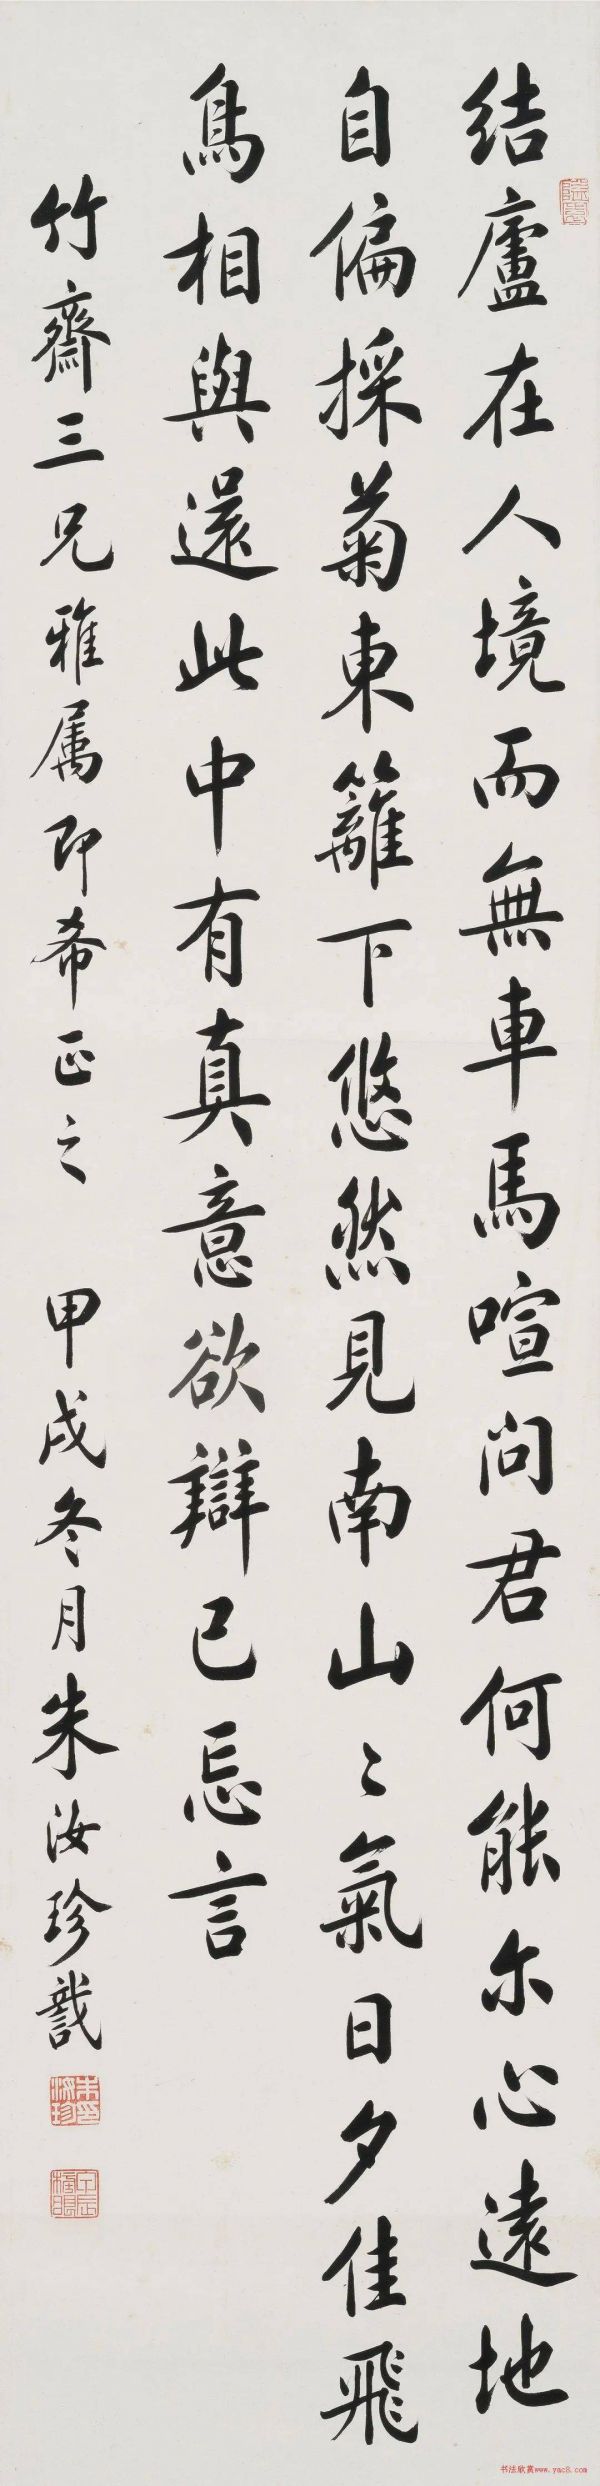 結廬在人境而無車馬喧問君何能尔心遠地
自偏採菊東籬下悠然見南山〻氣日夕佳飛
鳥相與還此中有真意欲辯已忘言
竹齋三兄雅属即希正之 甲戌冬月朱汝珍
朱印汝珍
甲辰榜眼
书法欣赏www.yac8.com